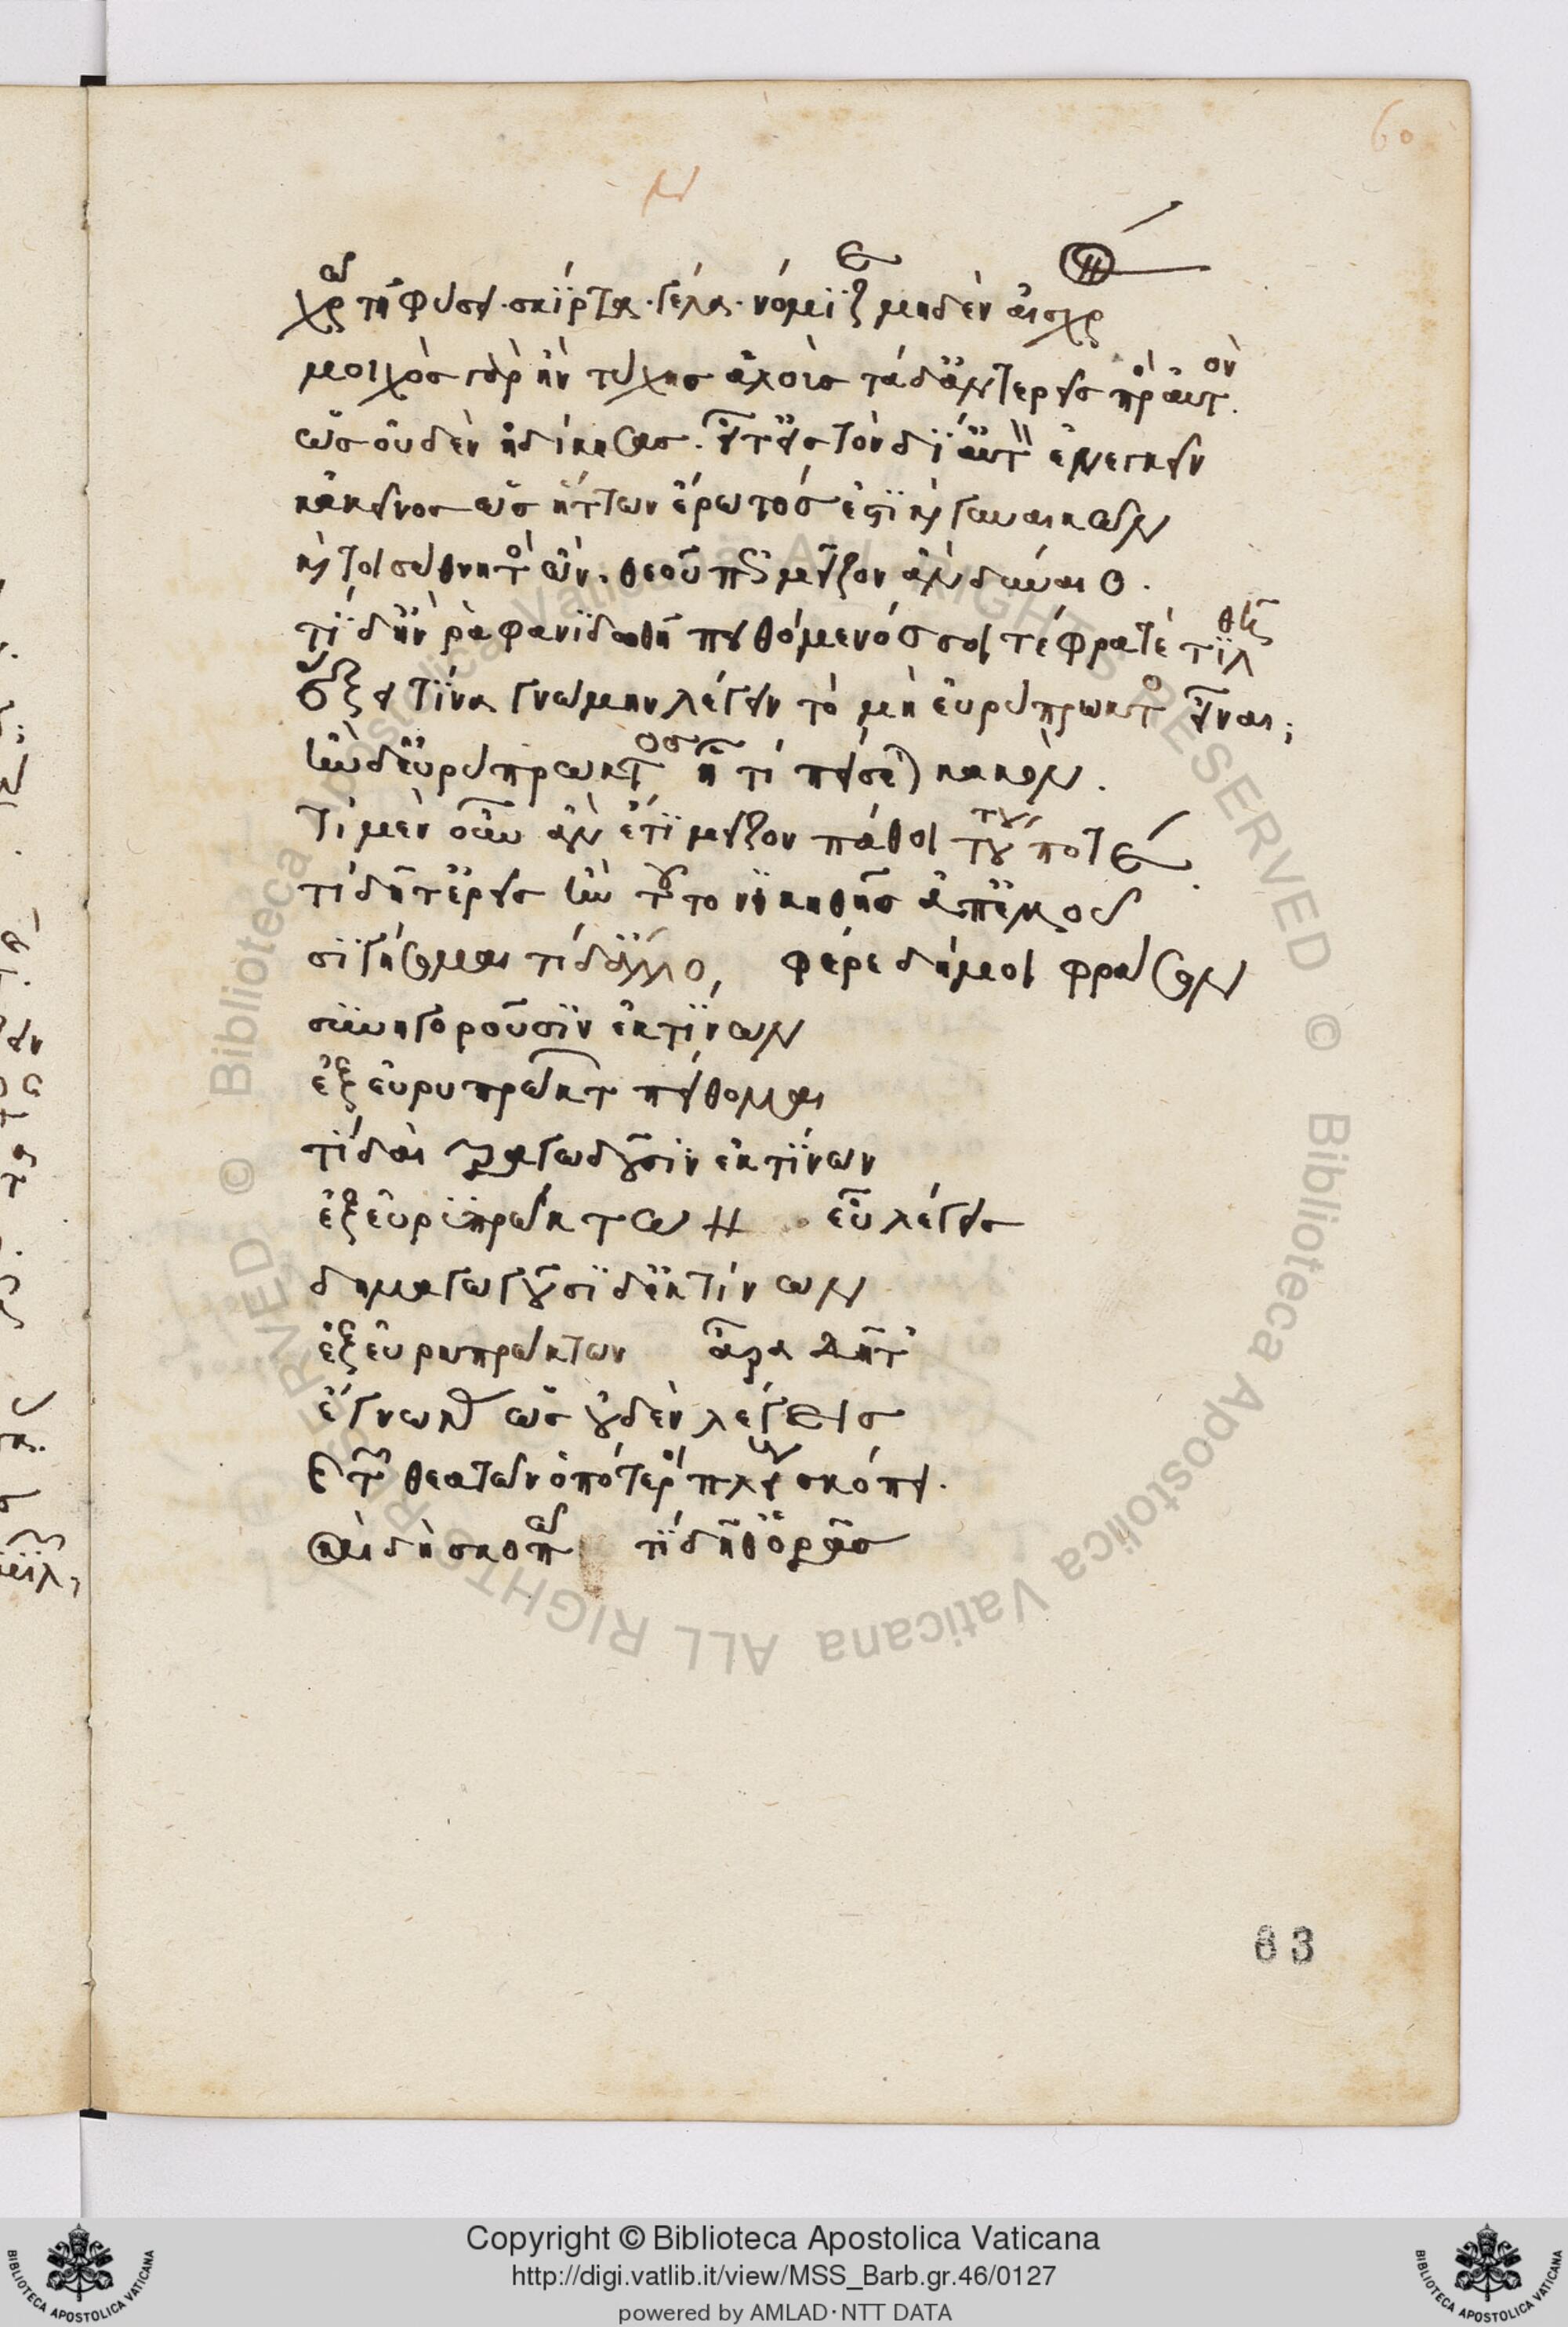 60
χρῶ τῆ φύσει· σκίρτα· γέλα· νόμιζε μηδὲν αἰσχρόν
μοιχὸς γὰρ ἢν τύχης ἁλοὺς τάδ' ἀντερεῖς πρὸς αὐτόν.
ὡς οὐδὲν ἠδίκησας. εἶτ' εἰς τὸν δί' αὐτ ἐπενεγκεῖν
κἀκεῖνος ὡς ἥττων ἔρωτός ἐστι καὶ γυναικῶν
καίτοι σὺ θνητὸς ὢν. θεοῦ πῶς μεῖζον ἂν δύναιο.
τί δ' ἢν ῥαφανιδωθῆ πιθόμενός σοι τέφρα τε τιλθῆ
ἕξει τίνα γνώμην λέγειν τὸ μὴ εὐρύπρωκτος εἶναι;
ἢν δ' εὐρύπρωκτος ἦ τί πείσεται κακόν.
τί μὲν οὖν ἂν ἔτι μεῖζον πάθοι τούτου ποτέ
τί δῆτ' ἐρεῖς ἢν τοῦτο νικηθῆς ἀπ' ἐμοῦ
σιγήσομαι τί δ' ἄλλο, φέρε δή μοι φράσον
συνηγοροῦσιν ἐκ τίνων
ἐξ εὐρυπρώκτων πείθομαι
τί δαὶ τραγωδοῦσιν ἐκ τίνων
ἐξ εὐριπρώκτων εὖ λέγεις
δημαγωγοῦσι δ' ἐκ τίνων
ἐξ εὐρυπρώκτων ἆρα δῆτ'
ἔγνωκας ὡς οὐδὲν λέγεις
καὶ τῶν θεατῶν ὁπότεροι πλείους σκόπει.
καὶ δὴ σκοπῶ τί δῆθ' ὁρᾶς
63
© Biblioteca Apostolica Vaticana ALL RIGHTS RESERVED © Biblioteca Apostolica Vaticana ALL RIGHTS RESERVED
Copyright © Biblioteca Apostolica Vaticana
http://digi.vatlib.it/view/MSS_Barb.gr.46/0127
powered by AMLAD·NTT DATA
BIBLIOTECA APOSTOLICA VATICANA
BIBLIOTECA APOSTOLICA VATICANA